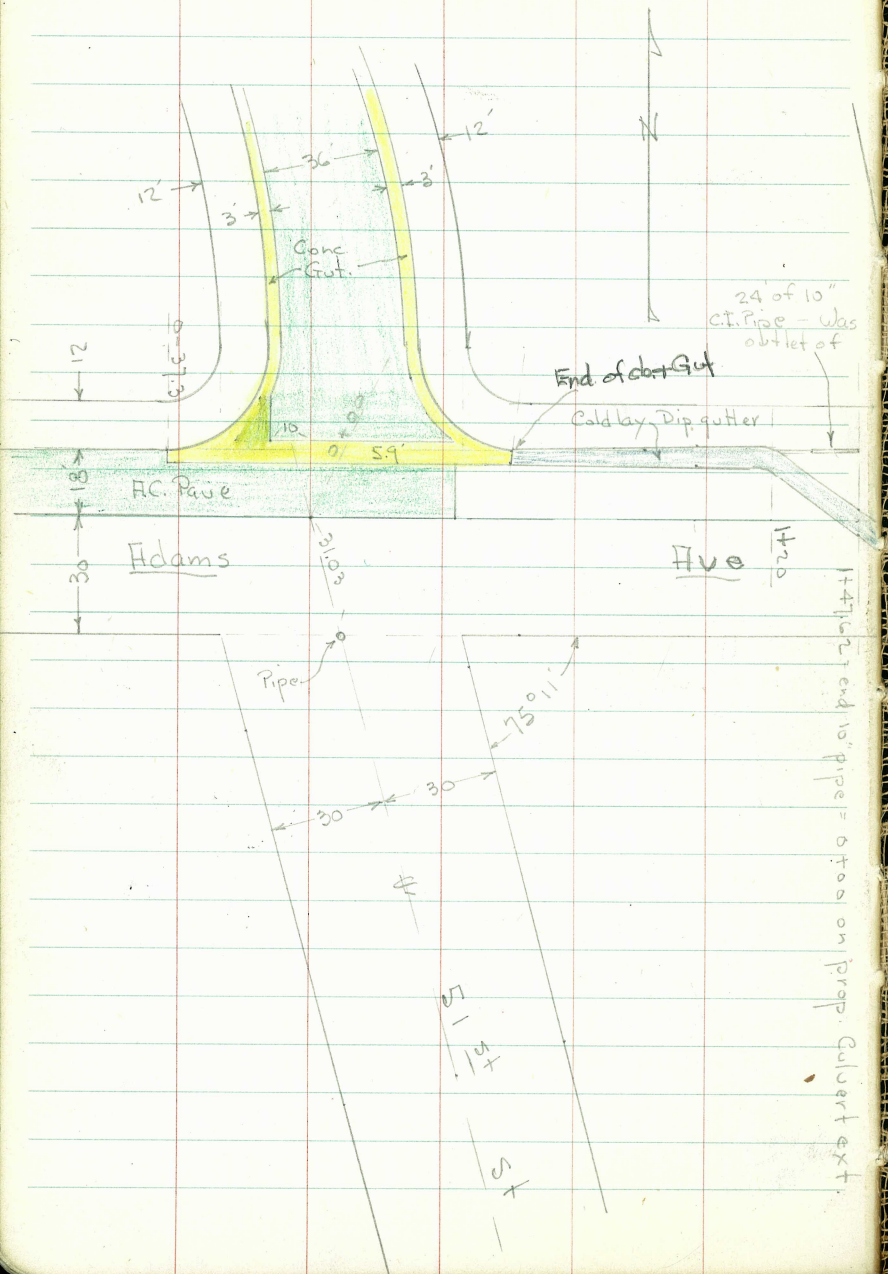 12'
36'
12'
3'
3'
N
Conc
Gut.
24' of 10"
C.I. Pipe - Was
outlet of
0-37.3
12
End of cb.+Gut
Cold lay Dip gutter
10
0+00
5.9'
18'
A.C. Pave
31.03
Adams
Ave
1+20
30
Pipe
75°11'
30
30
℄
51
St
1+47.62 = end 10" pipe = 0+00 on prop. Culvert ext.